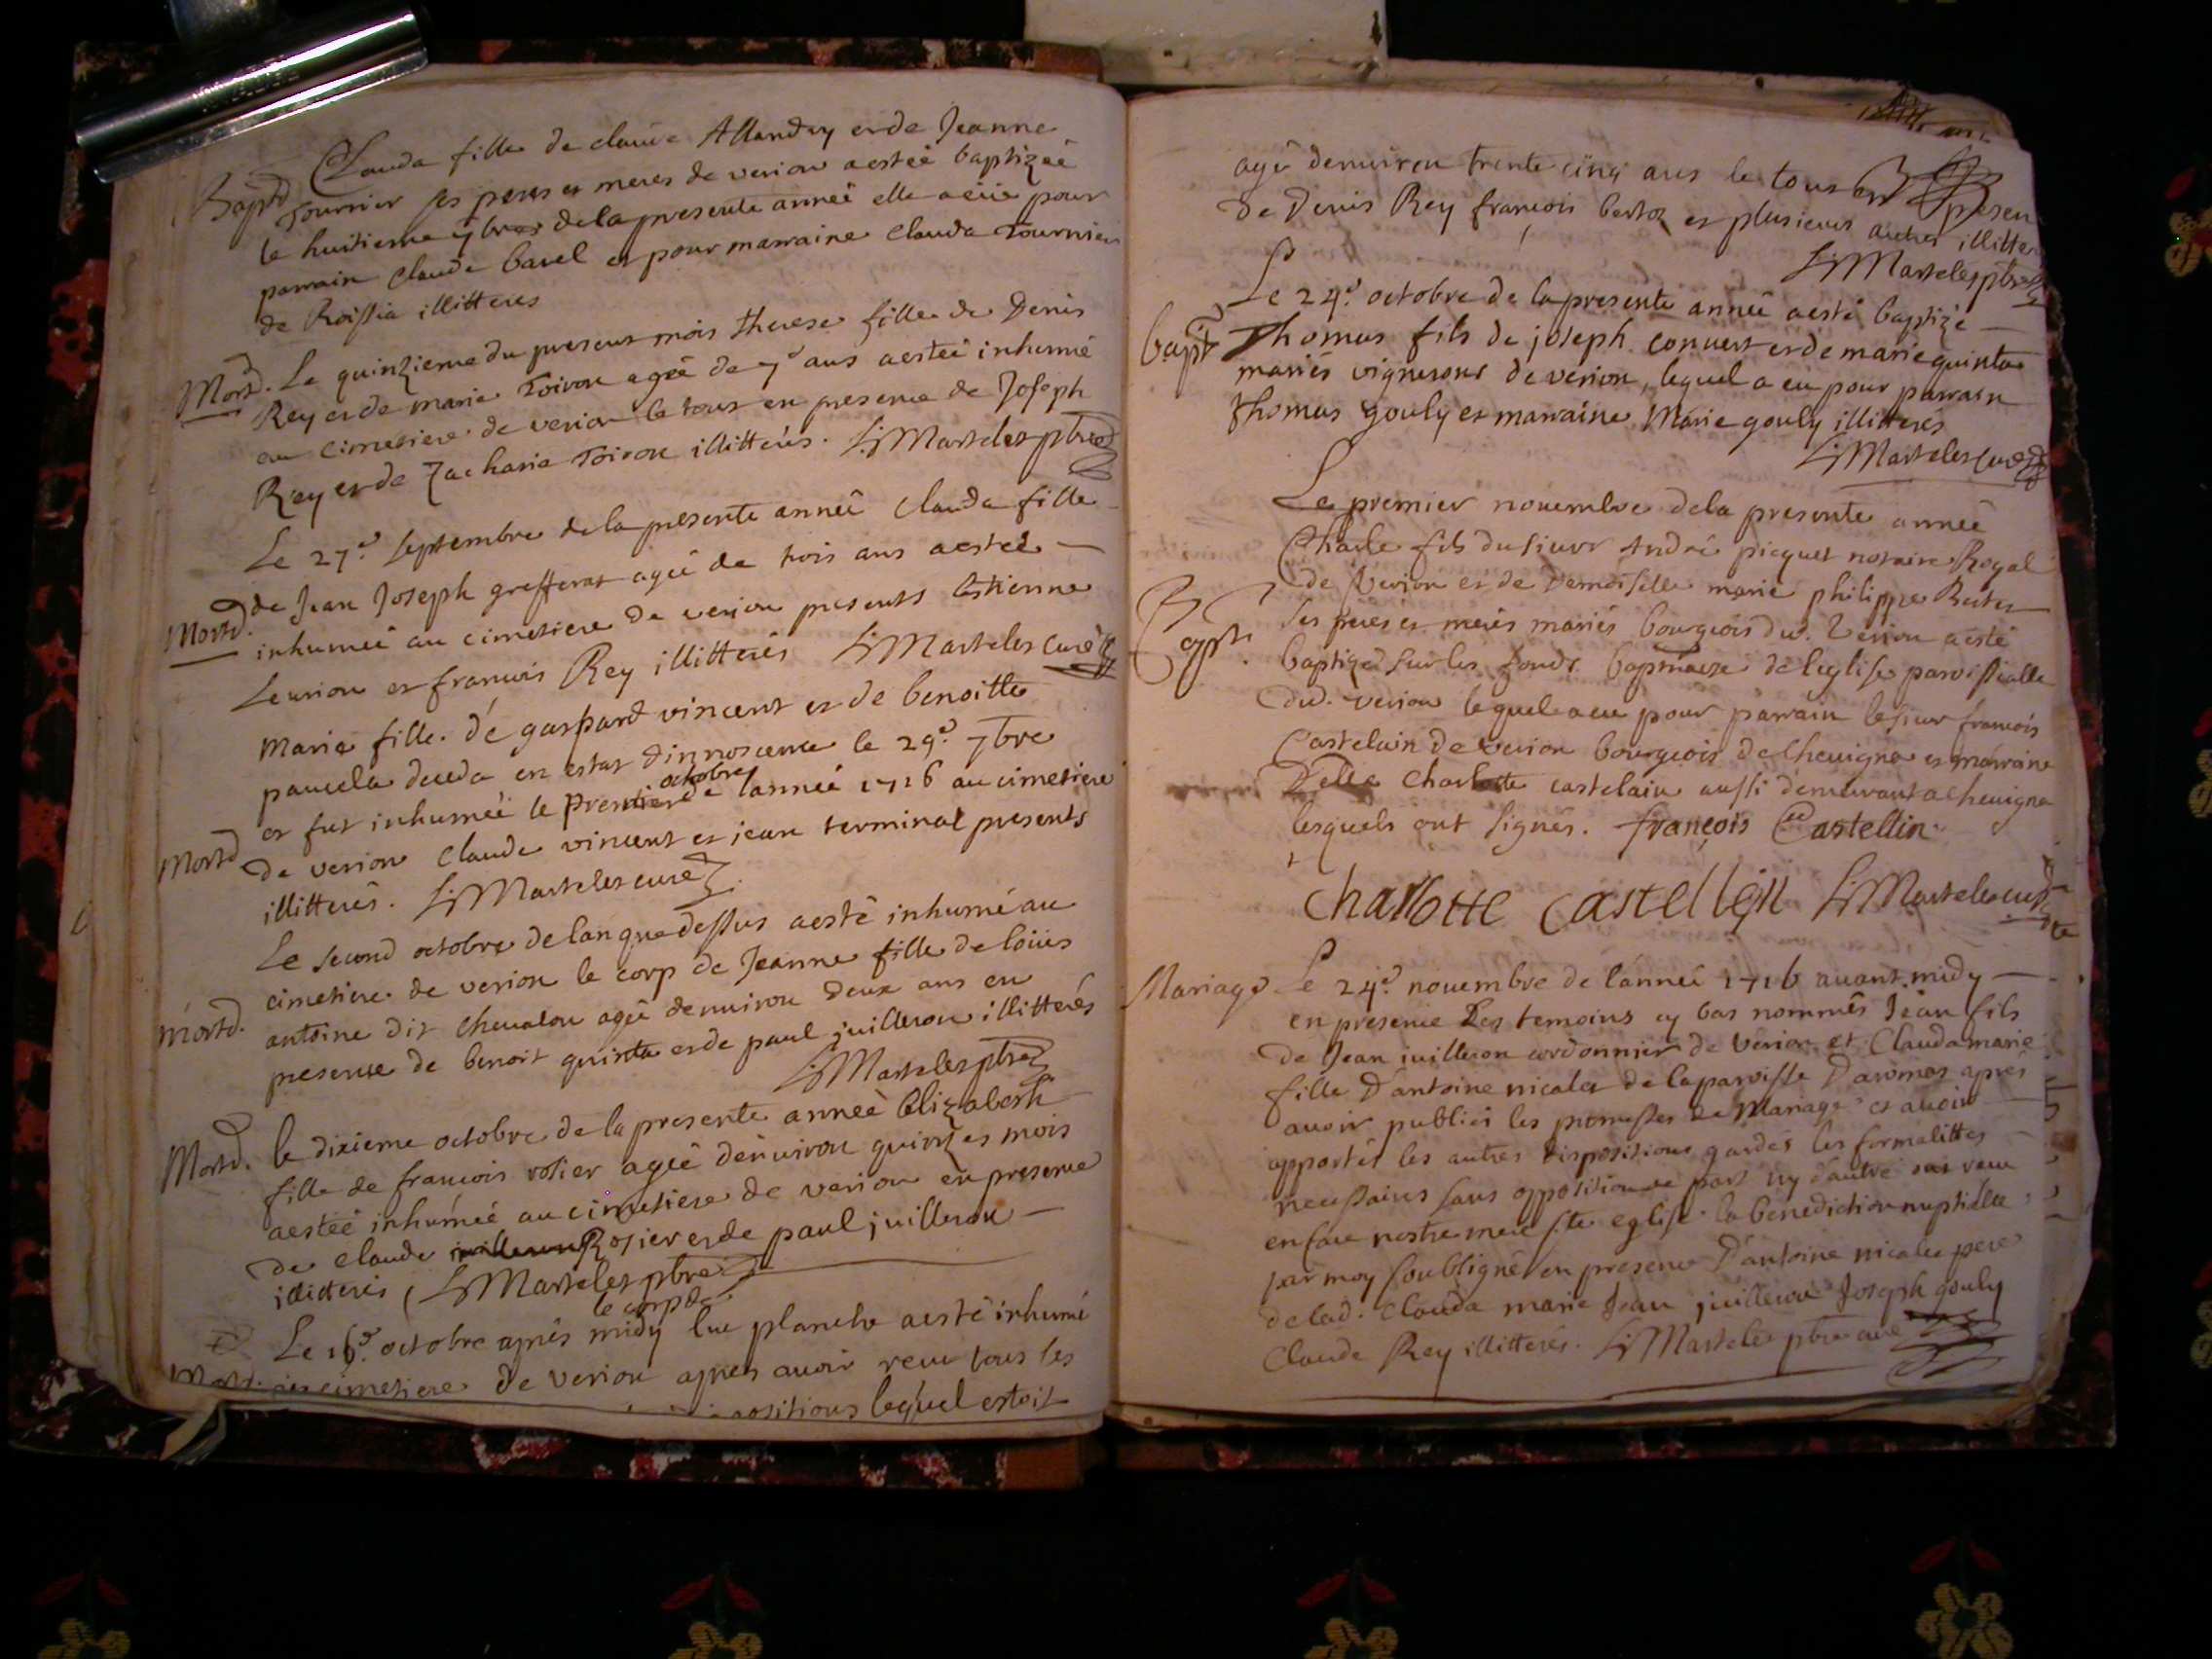 Clauda fille de claude Allandry et de Jeanne
Bapt.
Tournier ses peres et meres de verion a estéé baptizéé
le huitieme 7bre de la presente annéé elle a eüe pour
parrain Claude Bavel et pour marraine Clauda Tournier
de Roissia illitteres
Mort. Le quinzieme du present mois therese fille de Denis
Rey et de marie Toiron agéé de 7 ans a estéé inhumé
au cimetiere de verion le tout en presence de Joseph
Rey et de Zacharie Toiron illitterés. Martelet pbre
Le 27e septembre de la presente annéé Clauda fille
Mort. de Jean Joseph grefferat agéé de trois ans a estéé
inhuméé au cimetiere de verion presents Estienne
et francois Rey illitterés Martelet curé
Marie fille de gaspard vincent et de benoitte
pancela deceda en estat dinnoscence le 29e 7bre
octobre
Mort et fut inhuméé le premier de l'annéé 1716 au cimetiere
de verion Claude vincent et jean terminal presents
illitterés. Martelet curé
Le second octobre de lan que dessus a esté inhumé au
cimetiere de verion le corp de Jeanne fille de loüis
mort. antoine dit Chevalon agéé denviron deux ans en
presence de benoit quinta et de paul juilleron illitterés
Martelet pbre
Mort. le dixieme octobre de la presente annéé Elizabeth
fille de francois rosier agéé denviron quinzes mois
a estéé inhuméé au cimetiere de verion en presence
de Claude Rosier et de paul juilleron
illitterés Martelet pbre
le corp de
Le 16e octobre aprés midy luc planche a esté inhumé
Mort. cimetiere de verion apres avoir receu tous les
lequel estoit
agé denviron trente cinq ans le tout en presen
de Denis Rey françois bertoz et plusieurs autres illitter
Martelet pbre
Le 24e octobre de la presente annéé a esté baptizé
bapt Thomas fils de joseph convert et de marie quinta
mariés vignerons de verion, lequel a eu pour parrain
thomas gouly et marraine Marie gouly illitterés
Martelet curé
Le premier novembre de la presente annéé
Charle fils du sieur André picquet notaire Royal
de verion et de Demoiselle marie philippe
Bapt. ses peres et meres mariés bourgeois dud. verion a esté
baptizé sur les fonds baptismaux de l'eglise paroissialle
dud. verion lequel a eu pour parrain le sieur francois
Castelain de verion bourgeois de Chevigna et marraine
Delle Charlotte castelain aussi demeurant a chevigna
lesquels ont signés. françois Castellin
charlotte castellein Martelet curé
Mariage. Le 24e novembre de l'annéé 1716 avant midy
en presence des temoins cy bas nommés Jean fils
de Jean juilleron cordonnier de verion et Clauda marie
fille D'antoine nicalet de la paroisse D'aromas aprés
avoir publiés les promesses de Mariage et avoir
apportés les autres dispositions gardés les formalittes
necessaires sans opposition de part ny d'autre ont receu
en face nostre mere ste eglise la benediction nuptialle
par moy soubligné en presence D'antoine nicalet pere
de lad. Clauda marie Jean juilleron Joseph gouly
Claude Rey illitterés. Martelet pbre curé